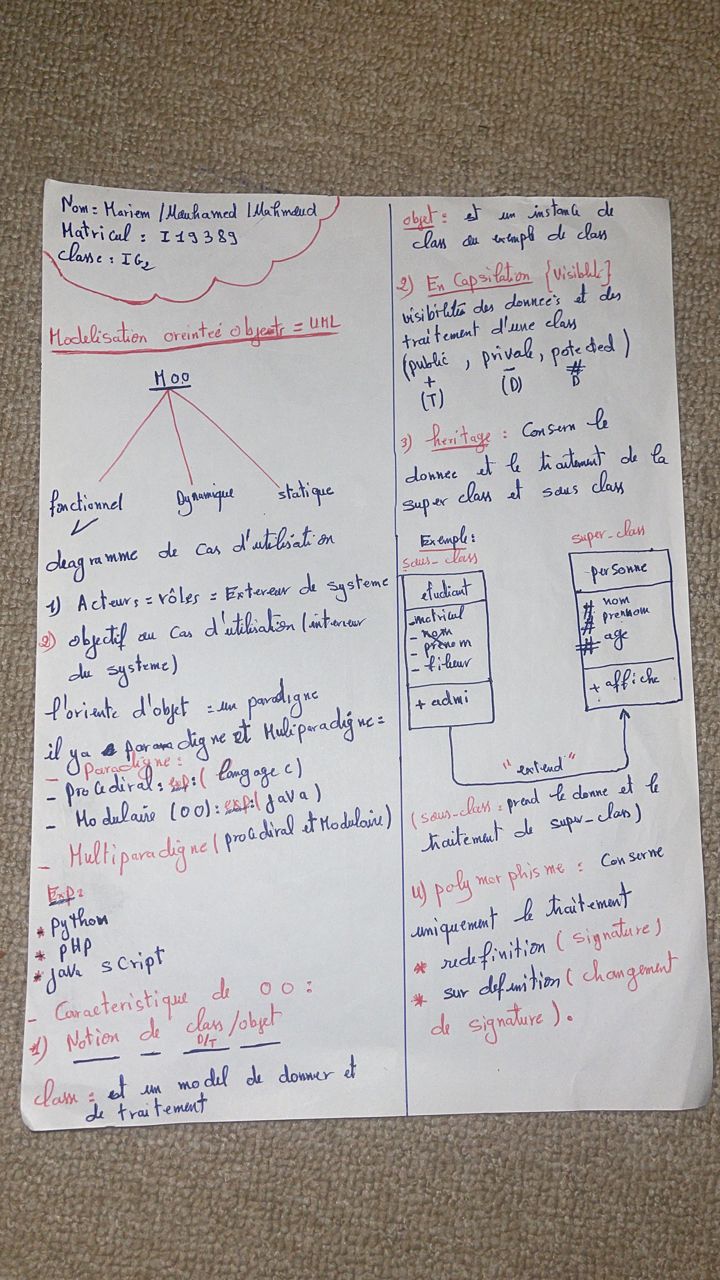 Nom = Mariem /Mouhamed /Mahmoud
Matricul : I19389
Classe : IG2
Modelisation oreinteé objects = UML
MOO
fonctionnel
Dynamique
statique
deagramme de cas d'utilisation
1) Acteurs = rôles = Extereur de systeme
2) objectif ou cas d'utilisation (interieur
du systeme)
l'oriente d'objet = un paradigne
il ya paradigne et Multiparadigne =
- Paradigne :
- procediral : exp : ( langage c)
- Modulaire (OO) : exp : ( java )
- Multiparadigne ( procediral et Modulaire)
Exp :
* Python
* PHP
* java script
- Caracteristique de OO :
1) Notion de class/objet
D/T
class : et un model de donner et
de traitement
objet : et un instance de
class ou exempl de class
2) En Capsilation {Visiblité}
visibilités des donneés et des
traitement d'une class
(public , private, potected )
+ - #
(T) (D) D
3) heritage : Consern le
donnee et le traitement de la
super class et sous class
Exemple :
sous_class
super_class
etudiant
- matricul
- nom
- prénom
- filieur
+ admi
personne
# nom
# prennom
# age
+ affiche
"extend"
(sous-class : prend le donne et le
traitement de super_class)
4) poly mor phis me : Conserne
uniquement le traitement
* redefinition ( signature)
* sur definition ( changement
de signature ).